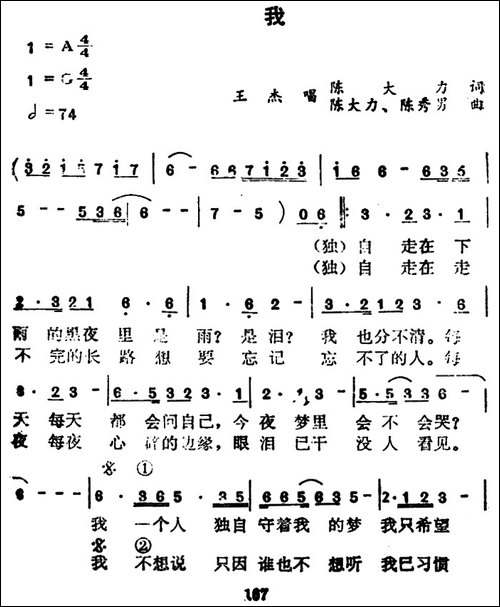 我
1 = A 4/4
1 = G 4/4
♩ = 74
王 杰 唱
陈 大 力 词
陈大力、陈秀男 曲
( 3 2 1 5 7 1 7 | 6 - 6 6 7 1 2 3 | 1 6 6 - 6 3 5 |
5 - - 5 3 6 | 6 - - | 7 - 5 ) 0 6 ‖: 3 · 2 3 · 1
(独) 自 走在 下
(独) 自 走在 走
2 · 3 2 1 6 · 6 | 1 · 6 2 - | 3 · 2 1 2 3 · 6
雨 的黑夜 里 是 雨? 是泪? 我 也分不清。每
不 完的长 路 想 要 忘记 忘 不了的人。每
6 · 2 3 - | 6 · 5 3 2 3 · 1 | 2 · 1 · | 5 · 5 3 3 6 -
天 每天 都 会问自己, 今夜 梦里 会 不 会哭?
夜 每夜 心 碎的边缘, 眼泪 已干 没人 看见。
𝄋 ①
6 - - - | 6 · 3 6 5 · 3 5 | 6 6 5 6 3 5 · | 2 · 1 2 3 -
我 一个人 独自 守着我 的梦 我只希望
𝄋 ②
我 不想说 只因 谁也不 想听 我已习惯
167